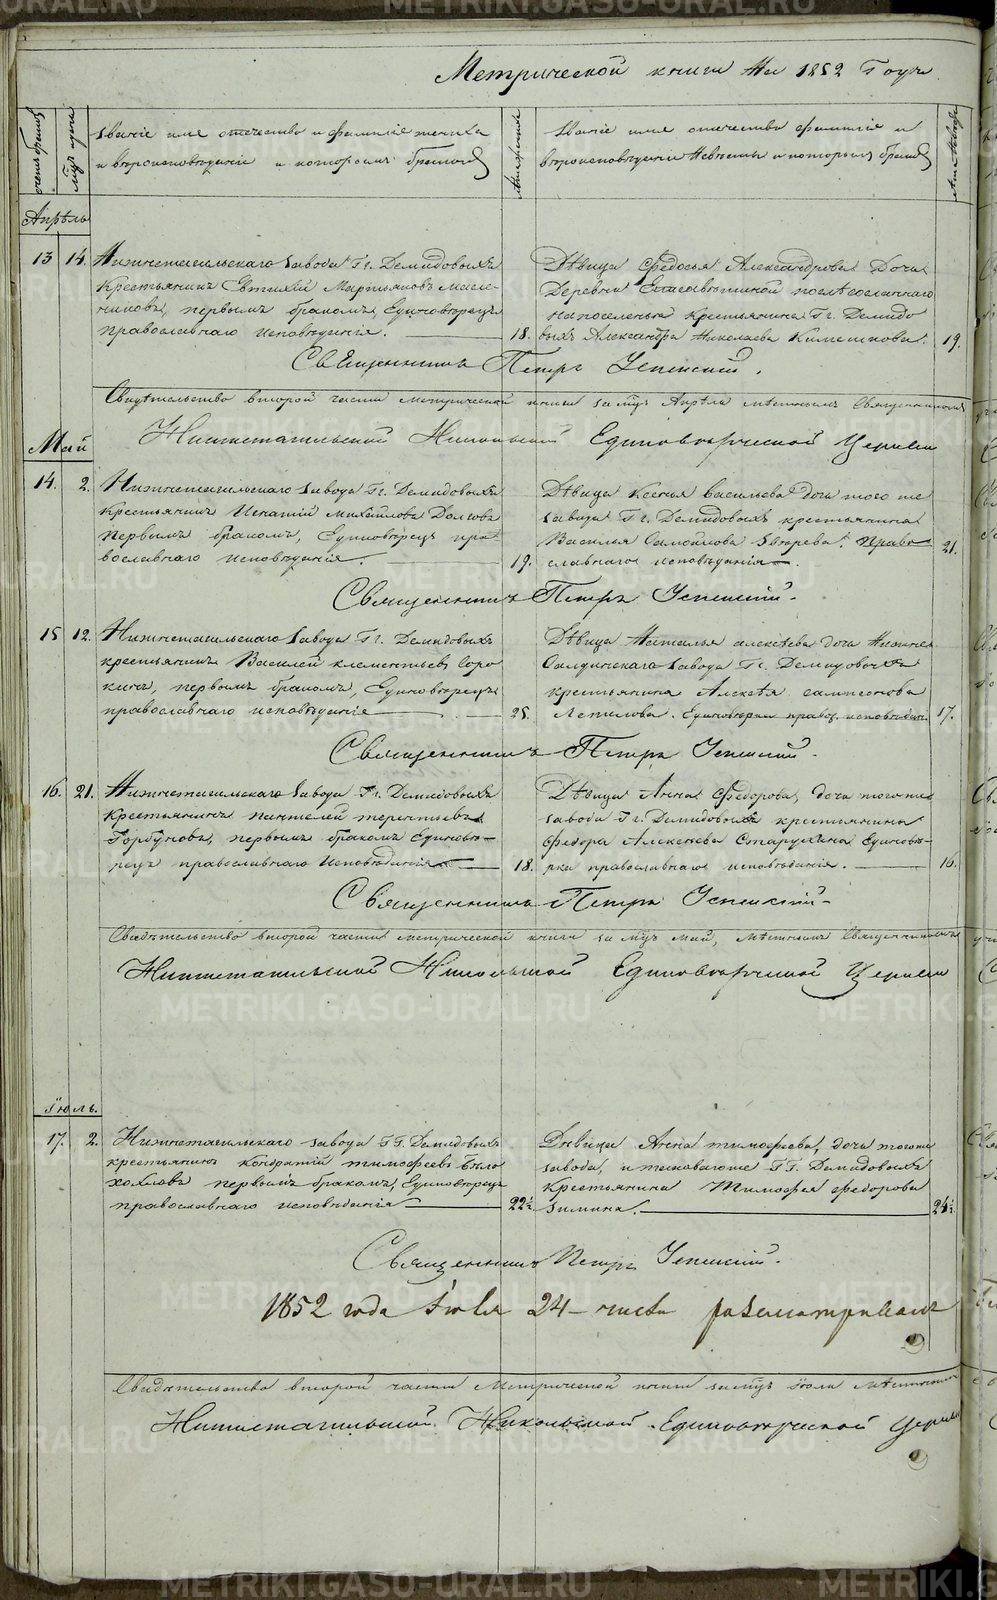 Метрической книги На 1852 Года
счетъ браков
м͠ць и дни
званіе имя отечество и фамиліе жениха
и вѣроисповѣданіе и которымъ бракомъ
лѣта жениха
званіе имя отечество фамиліе и
вѣроисповѣданіе Невѣсты и которымъ бракомъ
лѣта Невѣсты
Апрѣль
13 14. Нижнетагильскаго завода Гг. Демидовыхъ
крестьянинъ Евтихій Мартьяновъ Масле-
никовъ, первымъ бракомъ, Единовѣрецъ
православнаго исповѣданія. 18.
Дѣвица Федосья Александрова Дочь
Деревни Елисаветиной послѣ
Крестьянина Гг. Демидо
выхъ Александра Николаева 19.
Священникъ Петръ Успенскій.
Свидѣтельство второй части метрической книги за м͠цъ Апрѣль мѣстнымъ Священникомъ
Нижнетагильской Никольской Единовѣрческой Церкви
Май
14. 2. Нижнетагильскаго завода Гг. Демидовыхъ
крестьянинъ Игнатій Михайловъ Долговъ
первымъ бракомъ, Единовѣрецъ пра
вославнаго исповѣданія. 19.
Дѣвица Ксенья Васильева дочь того же
завода Гг. Демидовыхъ крестьянина
Василья Самойлова Право
славнаго исповѣданія. 21.
Священникъ Петръ Успенскій.
15 12. Нижнетагильскаго завода Гг. Демидовыхъ
крестьянинъ Василей Клементьевъ Соро
кинъ, первымъ бракомъ, Единовѣрецъ
православнаго исповѣданія 25.
Дѣвица Наталья алексѣева дочь Нижне
Салдинскаго завода Гг. Демидовыхъ
крестьянина Алексѣя
Единовѣрка правос. исповѣдані. 17.
Священникъ Петръ Успенскій.
16. 21. Нижнетагильскаго завода Гг. Демидовыхъ
Крестьянинъ пантелей терентьевъ
Горбуновъ, первымъ бракомъ Единовѣ-
рецъ православнаго Исповѣданія 18.
Дѣвица Анна Федорова, дочь тогоже
завода Гг. Демидовыхъ крестьянина
Федора Алексѣева Старухина Единовѣ-
рка православнаго исповѣданія. 16.
Священникъ Петръ Успенскій
Свидѣтельство второй части метрической книги за м͠цъ Май, мѣстнымъ Священникомъ
Нижнетагильской Никольской Единовѣрческой Церкви
Іюль.
17. 2. Нижнетагильскаго завода ГГ. Демидовыхъ
крестьянинъ Кондратій тимофеевъ Бѣло
хохловъ первымъ бракомъ, Единовѣрецъ
православнаго исповѣданія 22½
Дѣвица Анна тимофеева, дочь тогоже
завода, ГГ. Демидовыхъ
Крестьянина Тимофея Федорова
Зимина. 24½
Священникъ Петръ Успенскій.
1852 года Іюля 24 числа разсматривалъ
Свидѣтельство второй части Метрической книги за м͠цъ Іюль Мѣстнымъ
Нижнетагильской Никольской Единовѣрческой Церкви
METRIKI.GASO-URAL.RU